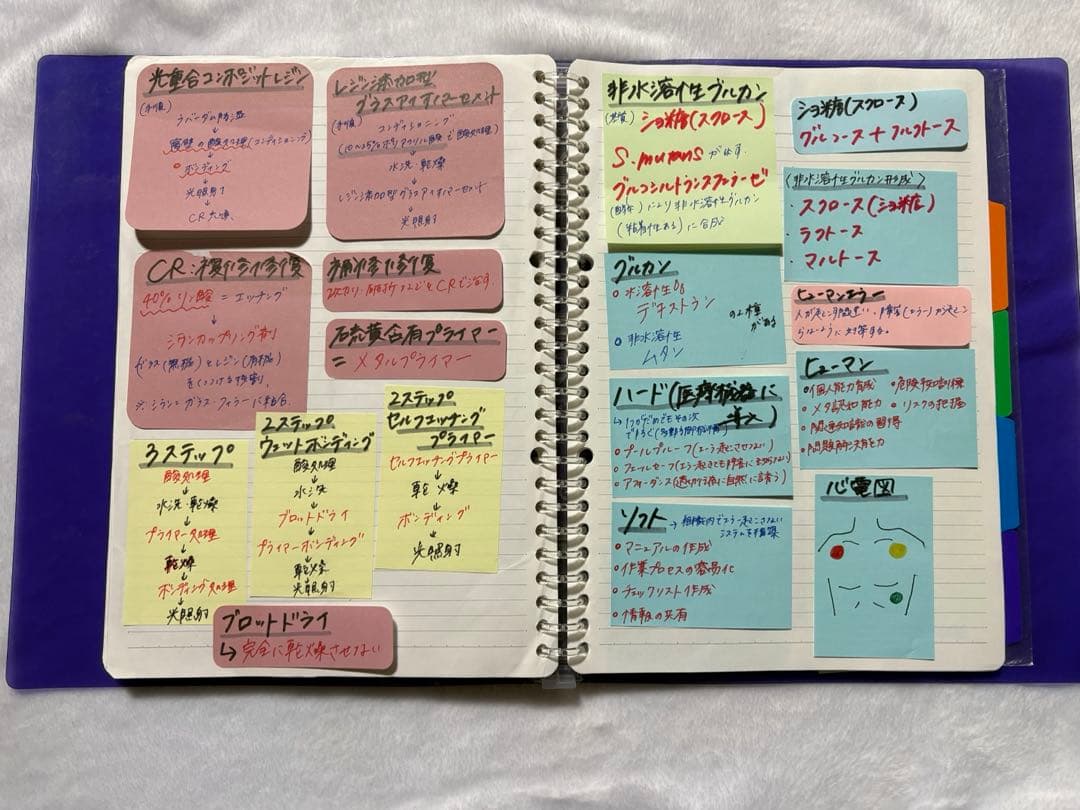 光重合コンポジットレジン
(手順)
ラバーダム防湿
↓
窩壁の酸処理(コンディショニング)
↓
ボンディング
↓
光照射
↓
CR充填
レジン添加型
グラスアイオノマーセメント
(手順) コンディショニング
(10〜25%ポリアクリル酸で酸処理)
↓
水洗・乾燥
↓
レジン添加型グラスアイオノマーセメント
↓
光照射
CR:補修修復
40%リン酸=エッチング
↓
シランカップリング剤
ガラス(無機)とレジン(有機)
をくっつける役割。
※シラン=ガラス・フィラーに結合。
補修修復
をCRで治す。
石硫黄含有プライマー
=メタルプライマー
3ステップ
酸処理
↓
水洗・乾燥
↓
プライマー処理
↓
乾燥
↓
ボンディング処理
↓
光照射
2ステップ
ウェットボンディング
酸処理
↓
水洗
↓
ブロットドライ
↓
プライマーボンディング
↓
乾燥
↓
光照射
2ステップ
セルフエッチング
プライマー
セルフエッチングプライマー
↓
乾燥
↓
ボンディング
↓
光照射
ブロットドライ
↳完全に乾燥させない
非水溶性グルカン
(基質) ショ糖(スクロース)
S.mutansが出す
グルコシルトランスフェラーゼ
(酵素)により非水溶性グルカン
(粘着性ある)に合成
ショ糖(スクロース)
グルコース+フルクトース
(非水溶性グルカン形成)
・スクロース(ショ糖)
・ラクトース
・マルトース
グルカン
○水溶性
デキストラン
○非水溶性
ムタン
の2種
がある
ヒューマンエラー
ハード(医療機器に
導入)
・フールプルーフ(エラー起こさせない)
・フェールセーフ(エラー起きても障害にならない)
・アフォーダンス(適切な行為に自然に誘う)
ヒューマン
・個人能力育成
・メタ認知能力
・関連知識の習得
・問題解決能力
・危険認知訓練
・リスクの把握
ソフト→組織内でエラー起こさない
システムを構築
・マニュアルの作成
・作業プロセスの容易化
・チェックリスト作成
・情報の共有
心電図